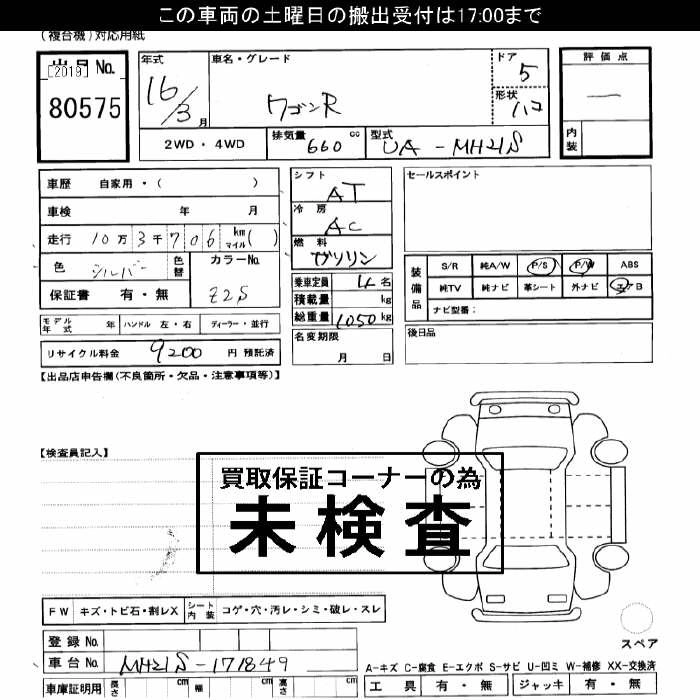 この車両の土曜日の搬出受付は17:00まで
(複合機)対応用紙
[2019] No.
80575
年式 16/3月
車名・グレード ワゴンR
ドア 5
形状 ハコ
評価点 ー
内装
2WD・4WD
排気量 660 cc
型式 UA-MH21S
車歴 自家用・( )
車検 年 月
走行 10万3千706 km マイル( )
色 シルバー 色替
カラーNo. Z2S
保証書 有・無
シフト AT
冷房 AC
燃料 ガソリン
乗車定員 4名
積載量 kg
総重量 1050 kg
名変期限 月 日
セールスポイント
装備品
S/R 純A/W P/S P/W ABS
純TV 純ナビ 革シート 外ナビ エアB
ナビ型番:
後日品
モデル年式 年 ハンドル 左・右 ディーラー・並行
リサイクル料金 9200 円 預託済
【出品店申告欄(不良箇所・欠品・注意事項等)】
【検査員記入】
買取保証コーナーの為
未検査
FW キズ・トビ石・割レX シート内装 コゲ・穴・汚レ・シミ・破レ・スレ
スペア
登録No.
車台No. MH21S-171849
車庫証明用 長さ cm 幅 cm 高さ cm
A-キズ C-腐食 E-エクボ S-サビ U-凹ミ W-補修 XX-交換済
工具 有・無 ジャッキ 有・無